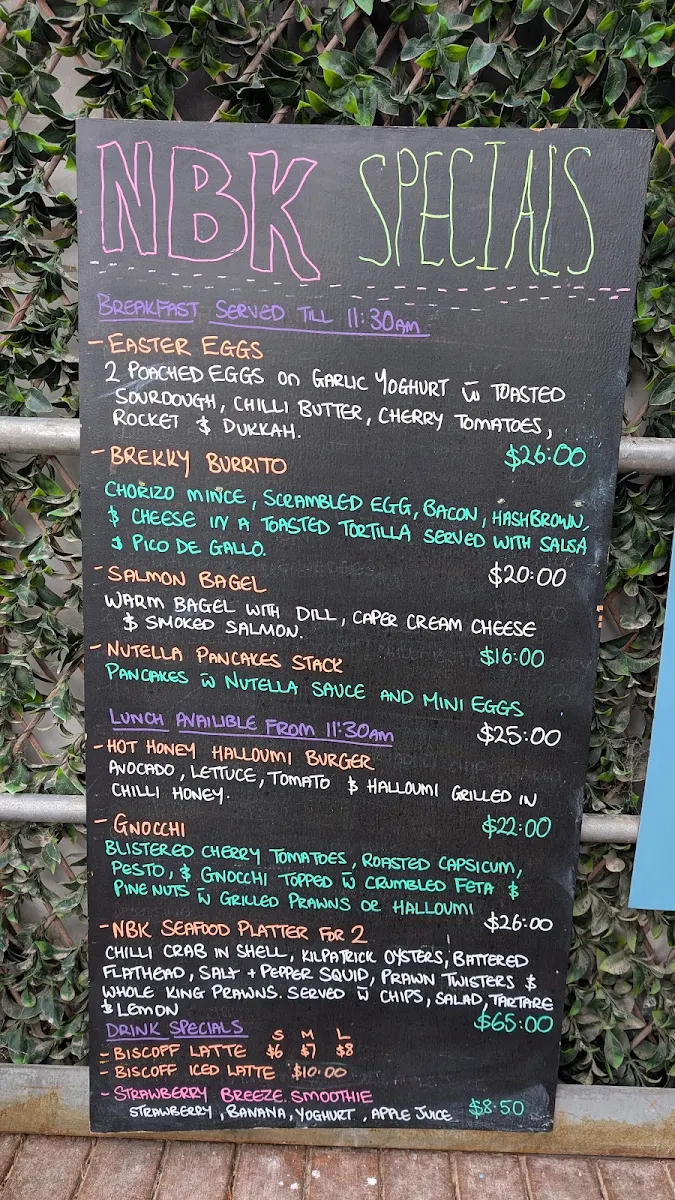 NBK SPECIALS
BREAKFAST SERVED TILL 11:30AM
- EASTER EGGS
2 POACHED EGGS ON GARLIC YOGHURT W̄ TOASTED
SOURDOUGH, CHILLI BUTTER, CHERRY TOMATOES,
ROCKET & DUKKAH.
$26:00
- BREKKY BURRITO
CHORIZO MINCE, SCRAMBLED EGG, BACON, HASHBROWN,
& CHEESE IN A TOASTED TORTILLA SERVED WITH SALSA
& PICO DE GALLO.
$20:00
- SALMON BAGEL
WARM BAGEL WITH DILL, CAPER CREAM CHEESE
& SMOKED SALMON.
$16:00
- NUTELLA PANCAKES STACK
PANCAKES W̄ NUTELLA SAUCE AND MINI EGGS
$25:00
LUNCH AVAILIBLE FROM 11:30AM
- HOT HONEY HALLOUMI BURGER
AVOCADO, LETTUCE, TOMATO & HALLOUMI GRILLED IN
CHILLI HONEY.
$22:00
- GNOCCHI
BLISTERED CHERRY TOMATOES, ROASTED CAPSICUM,
PESTO, & GNOCCHI TOPPED W̄ CRUMBLED FETA &
PINE NUTS W̄ GRILLED PRAWNS OR HALLOUMI
$26:00
- NBK SEAFOOD PLATTER FOR 2
CHILLI CRAB IN SHELL, KILPATRICK OYSTERS, BATTERED
FLATHEAD, SALT + PEPPER SQUID, PRAWN TWISTERS &
WHOLE KING PRAWNS. SERVED W̄ CHIPS, SALAD, TARTARE
& LEMON
$65:00
DRINK SPECIALS S M L
- BISCOFF LATTE $6 $7 $8
- BISCOFF ICED LATTE $10.00
- STRAWBERRY BREEZE SMOOTHIE
STRAWBERRY, BANANA, YOGHURT, APPLE JUICE $8.50